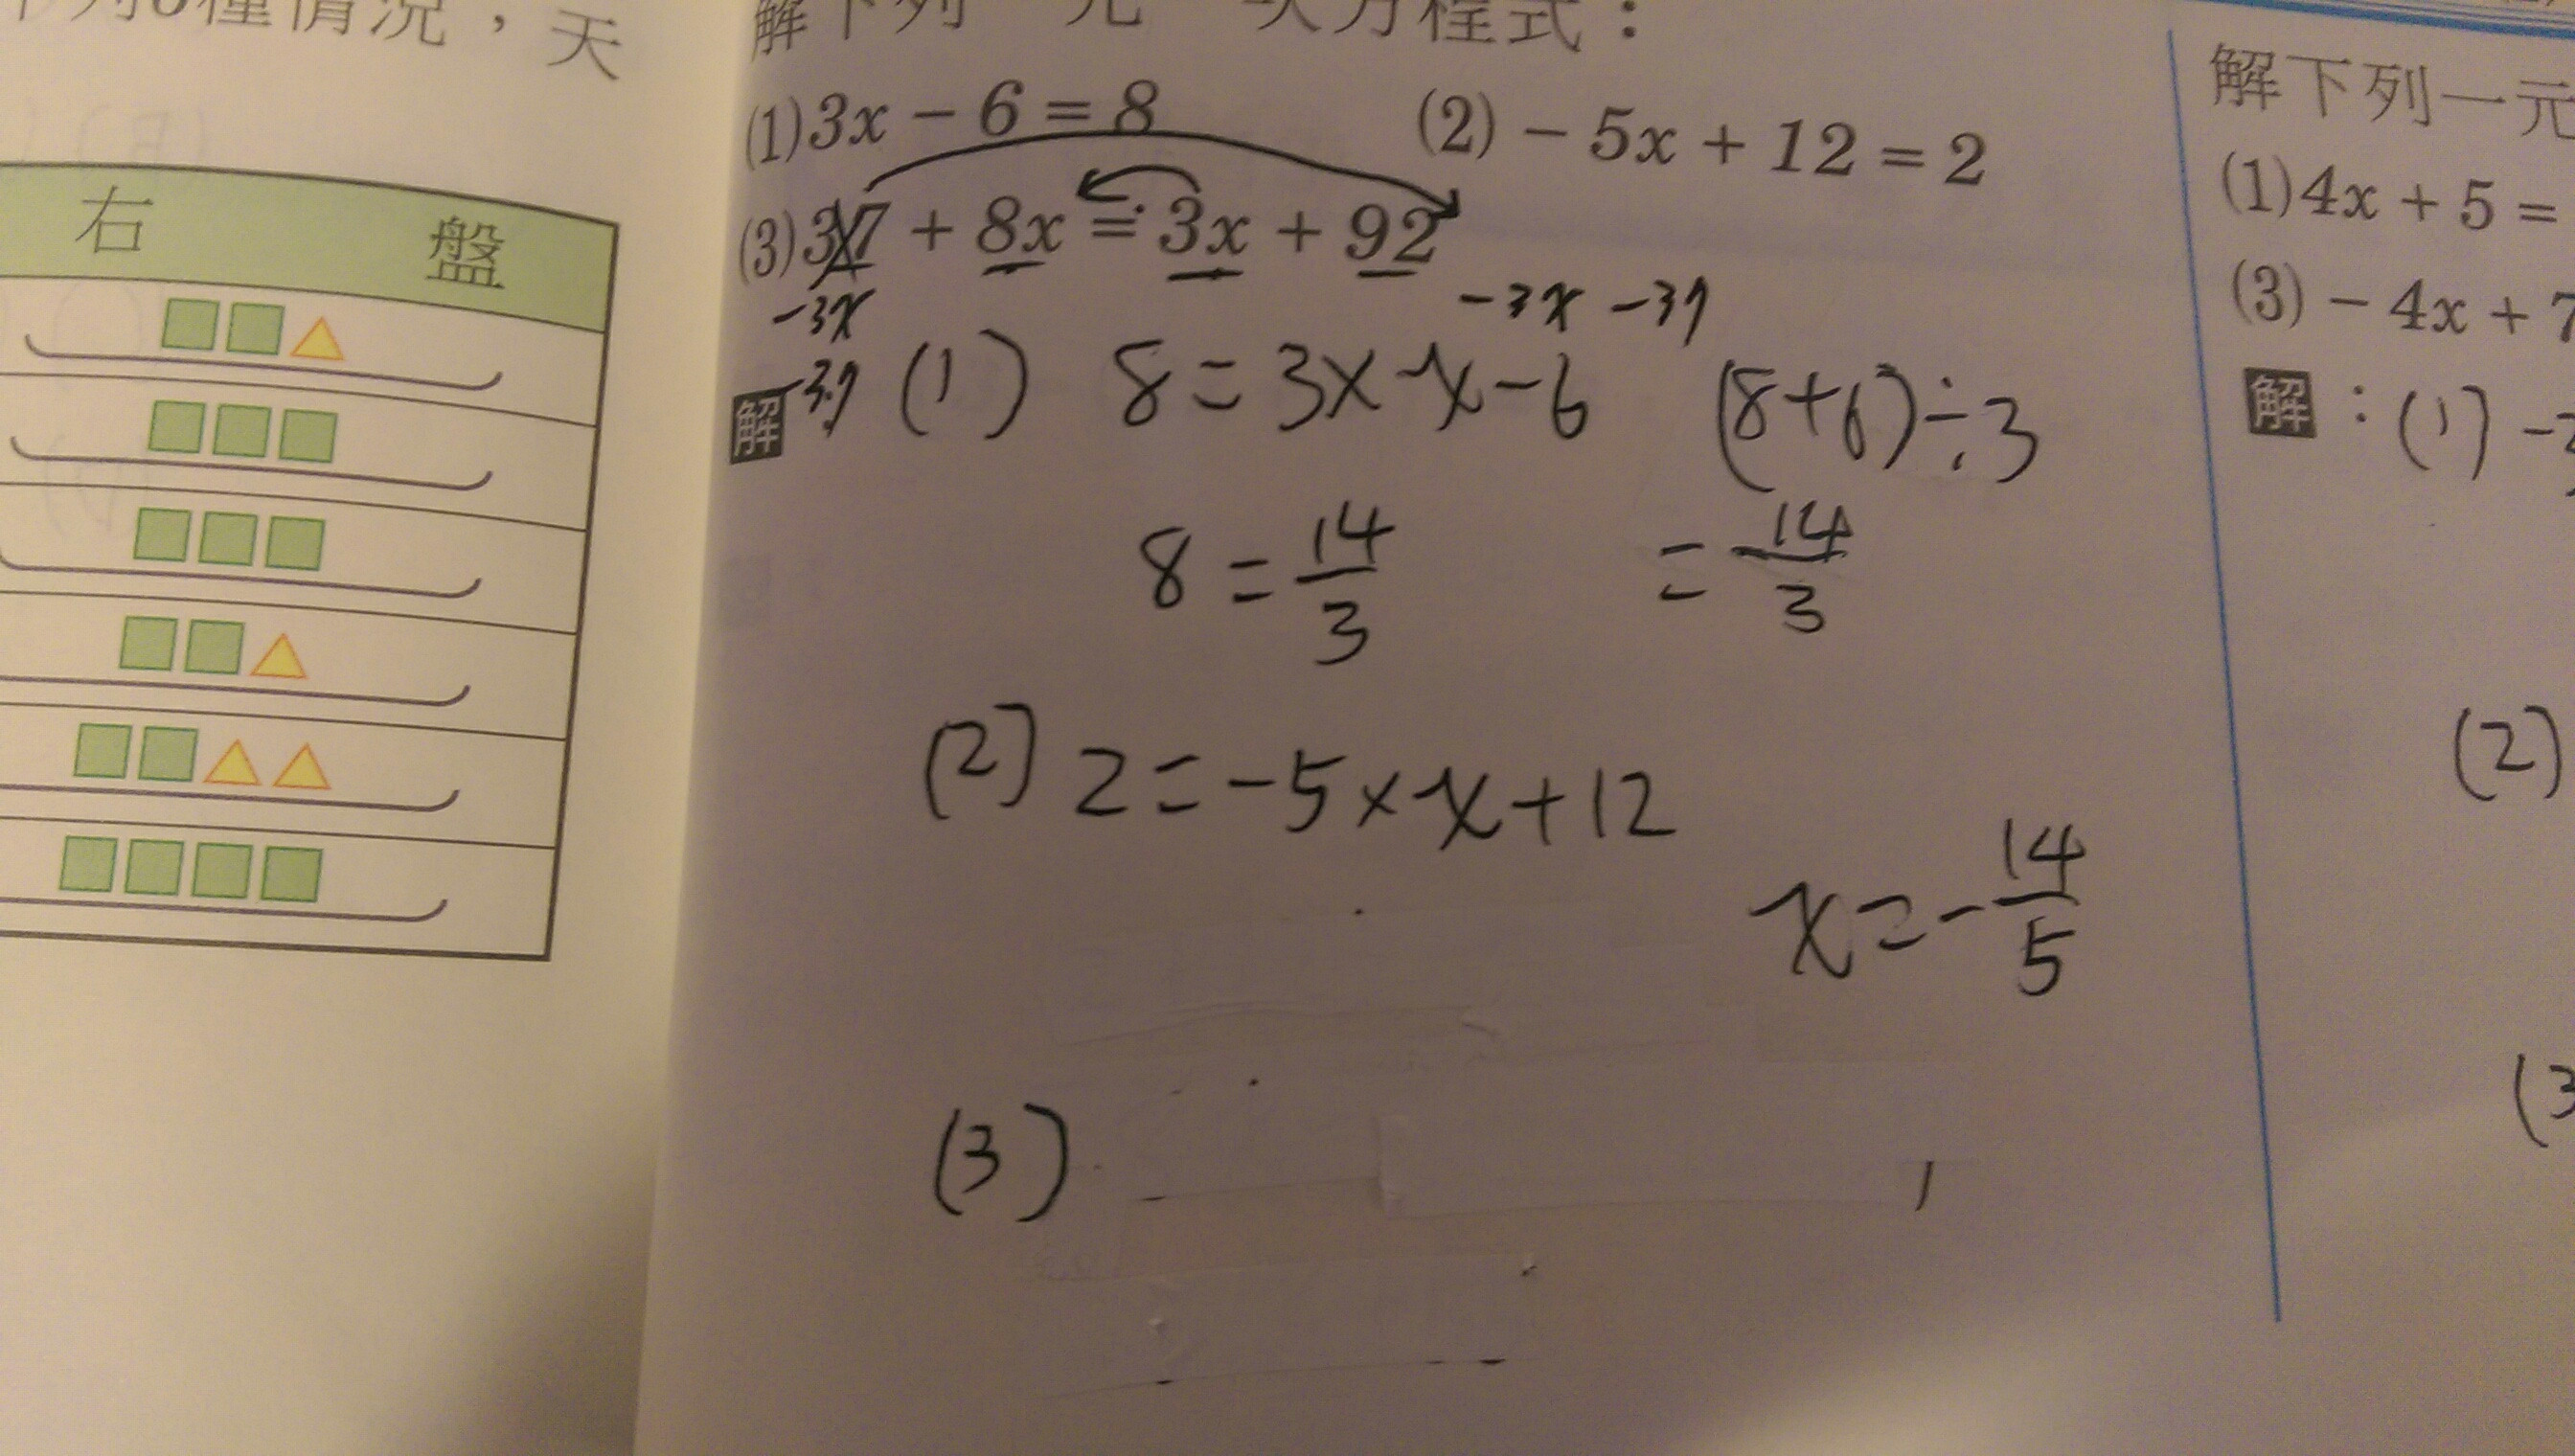 種情況，天
右 盤
解下列一元一次方程式：
(1) 3x − 6 = 8
(2) − 5x + 12 = 2
(3) 37 + 8x = 3x + 92
−3x
−3x −37
−37
解
(1) 8 = 3 × x − 6
(8+6)÷3
8 = 14/3
= 14/3
(2) 2 = −5 × x + 12
x = − 14/5
(3)
解下列一元
(1) 4x + 5 =
(3) − 4x + 7
解：(1) −
(2)
(3